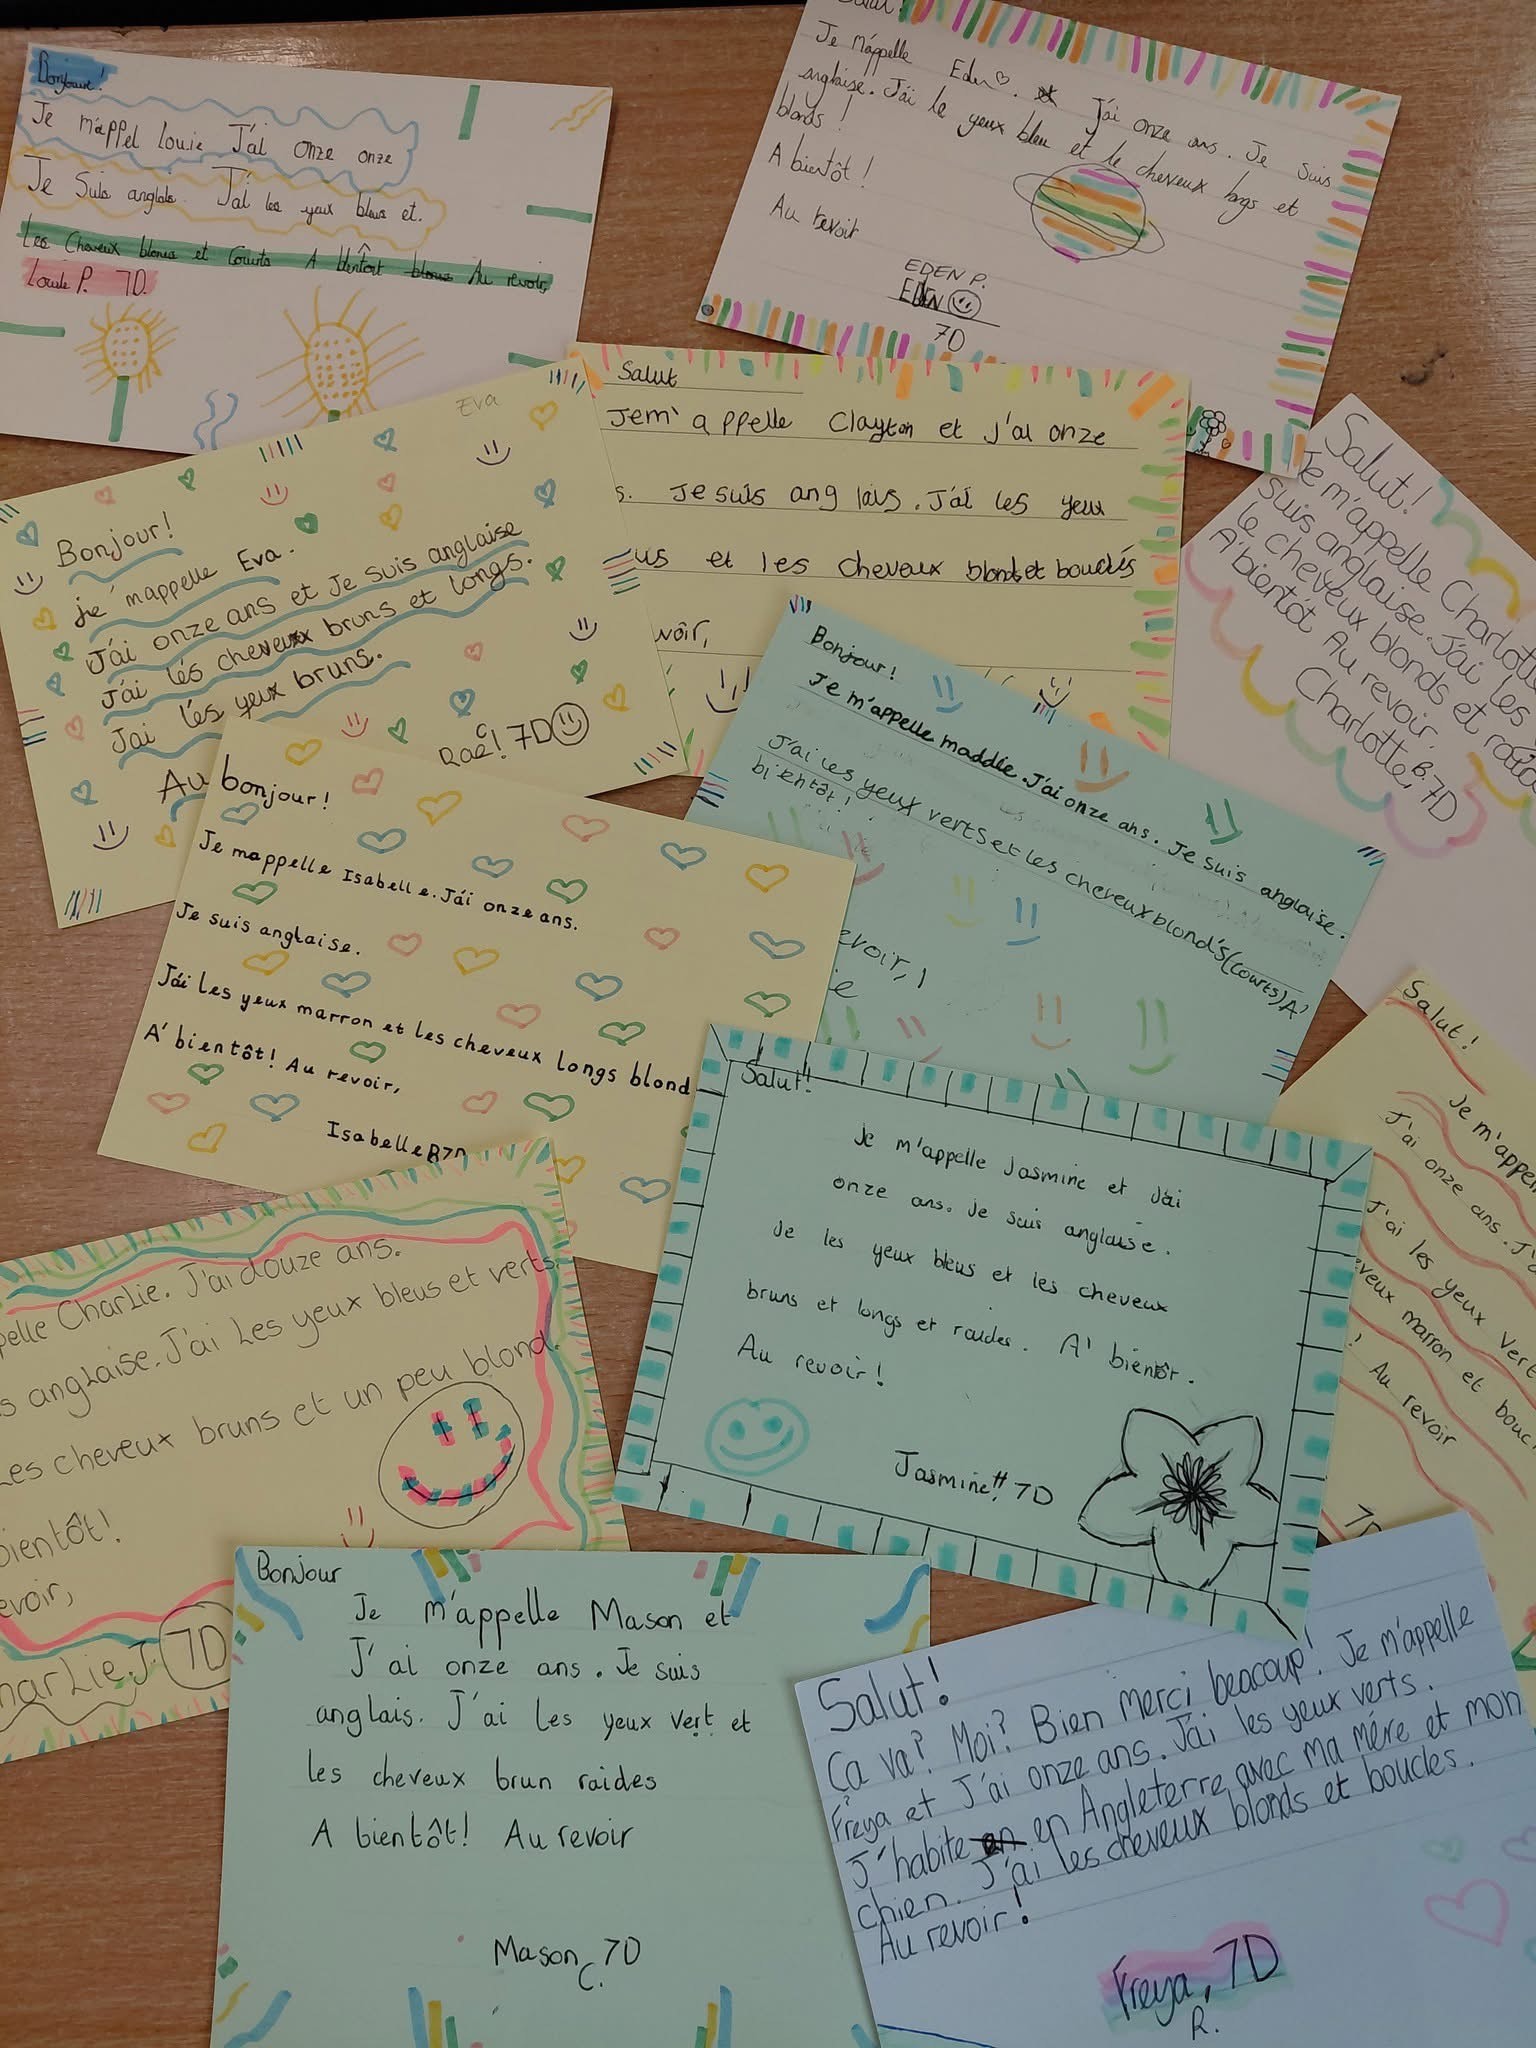 Bonjour!
Je m'appel Louie J'ai onze onze
Je Suis anglais. J'ai les yeux bleus et.
Les Cheveux et Courts A Au revoir,
Louie P. 7D.
Salut!
Je m'appelle Eden. J'ai onze ans. Je suis
anglaise. J'ai le yeux bleu et le cheveux longs et
blonds!
A bientôt!
Au revoir
EDEN P.
EDEN
7D
Salut
Jem'appelle Clayton et j'ai onze
s. Je suis anglais. J'ai les yeux
us et les cheveux blonds et bouclés
voir,
Salut!
Je m'appelle Charlotte
suis anglaise. J'ai les
le cheveux blonds et
A'bientôt Au revoir.
Charlotte, B. 7D
Eva
Bonjour!
je m'appelle Eva.
J'ai onze ans et Je suis anglaise
J'ai lés cheveux bruns et longs.
Jai lés yeux bruns.
Au
7D
Bonjour!
Je m'appelle maddie. J'ai onze ans. Je suis anglaise.
J'ai les yeux verts et les cheveux blond's (courts) A'
bientôt!
evoir,
ie
bonjour!
Je mappelle Isabelle. J'ai onze ans.
Je suis anglaise.
J'ai les yeux marron et les cheveux longs blond
A' bientôt! Au revoir,
Isabelle B 7D
Salut!!
Je m'appelle Jasmine et J'ai
onze ans. Je suis anglaise.
Je les yeux bleus et les cheveux
bruns et longs et raides. A' bientôt.
Au revoir!
Jasmine!! 7D
Salut!
Je m'appel
J'ai onze ans. J'
J'ai les yeux vert
eveux marron et bouc
! Au revoir
7D
pelle Charlie. J'ai douze ans.
s anglaise. J'ai Les yeux bleus et verts.
Les cheveux bruns et un peu blond.
bientôt!
evoir,
harlie. J. 7D
Bonjour
Je m'appelle Mason et
J'ai onze ans. Je suis
anglais. J'ai les yeux vert et
les cheveux brun raides
A bientôt! Au revoir
Mason C. 7D
Salut!
Ça va? Moi? Bien Merci beacoup! Je m'appelle
Freya et J'ai onze ans. J'ai les yeux verts.
J'habite en Angleterre avec ma mére et mon
chien. J'ai les cheveux blonds et boucles.
Au revoir!
Freya, 7D
R.